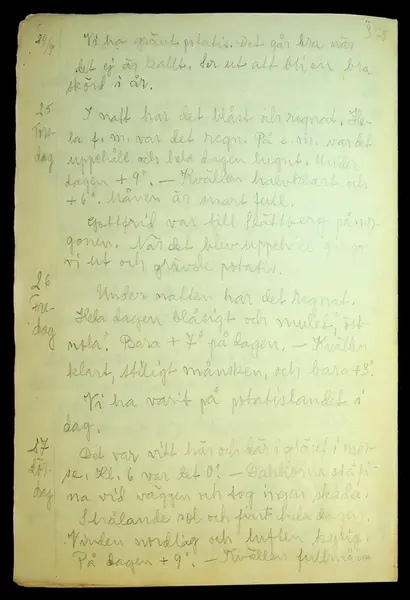 24/9
375
Vi ha grävt potatis. Det går bra när
det ej är kallt. Ser ut att bli en bra
skörd i år.
25
Tors-
dag
I natt har det blåst och regnat. He-
la f. m. var det regn. På e. m. var det
uppehåll och hela dagen lugnt. Under
dagen + 9°. — Kvällen halvklart och
+6°. Månen är snart full.
Gottfrid var till Slättberg på mor-
gonen. När det blev uppehåll gingo
vi ut och grävde potatis.
26
Fre-
dag
Under natten har det regnat.
Hela dagen blåsigt och mulet, ost
nola! Bara + 7° på dagen. — Kvällen
klart, stiligt månsken, och bara +3°.
Vi ha varit på potatislandet i
dag.
27
Lör-
dag
Det var vitt här och där i gräset i mor-
se. Kl. 6 var det 0°. —
na vid väggen och tog ingen skada.
Strålande sol och fint hela dagen.
Vinden nordlig och luften kylig.
På dagen + 9°. — Kvällen fullmåne